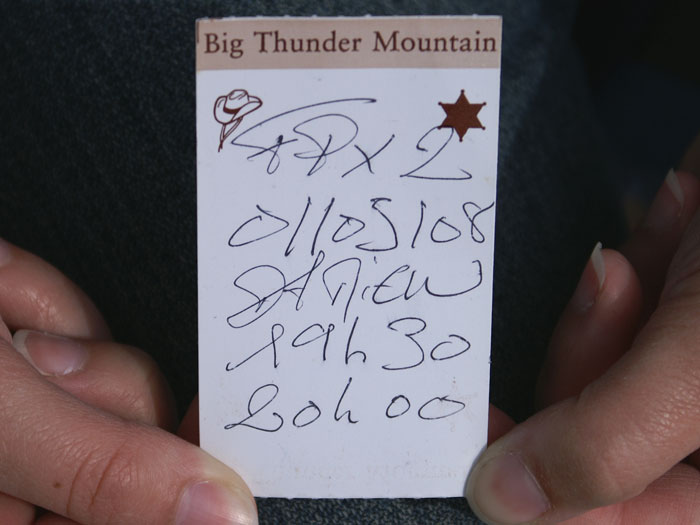 Big Thunder Mountain
FP x 2
01/05/08
DAMiEN
19h30
20h00